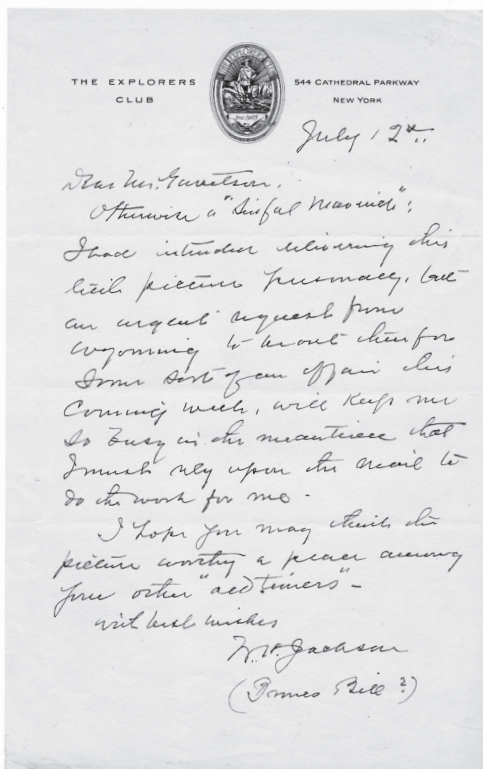 THE EXPLORERS
CLUB
544 CATHEDRAL PARKWAY
NEW YORK
July 12th.
Dear Mr.
Otherwise a "Sinful Maverick":
I had intended delivering this
little picture personally, but
an urgent request from
Wyoming to be out there for
Some sort of an affair this
Coming week, will keep me
So busy in the meantime that
I must rely upon the mail to
do the work for me -
I hope you may think the
picture worthy a place among
your other "old timers" -
with best wishes
W. H. Jackson
( Bill ?)